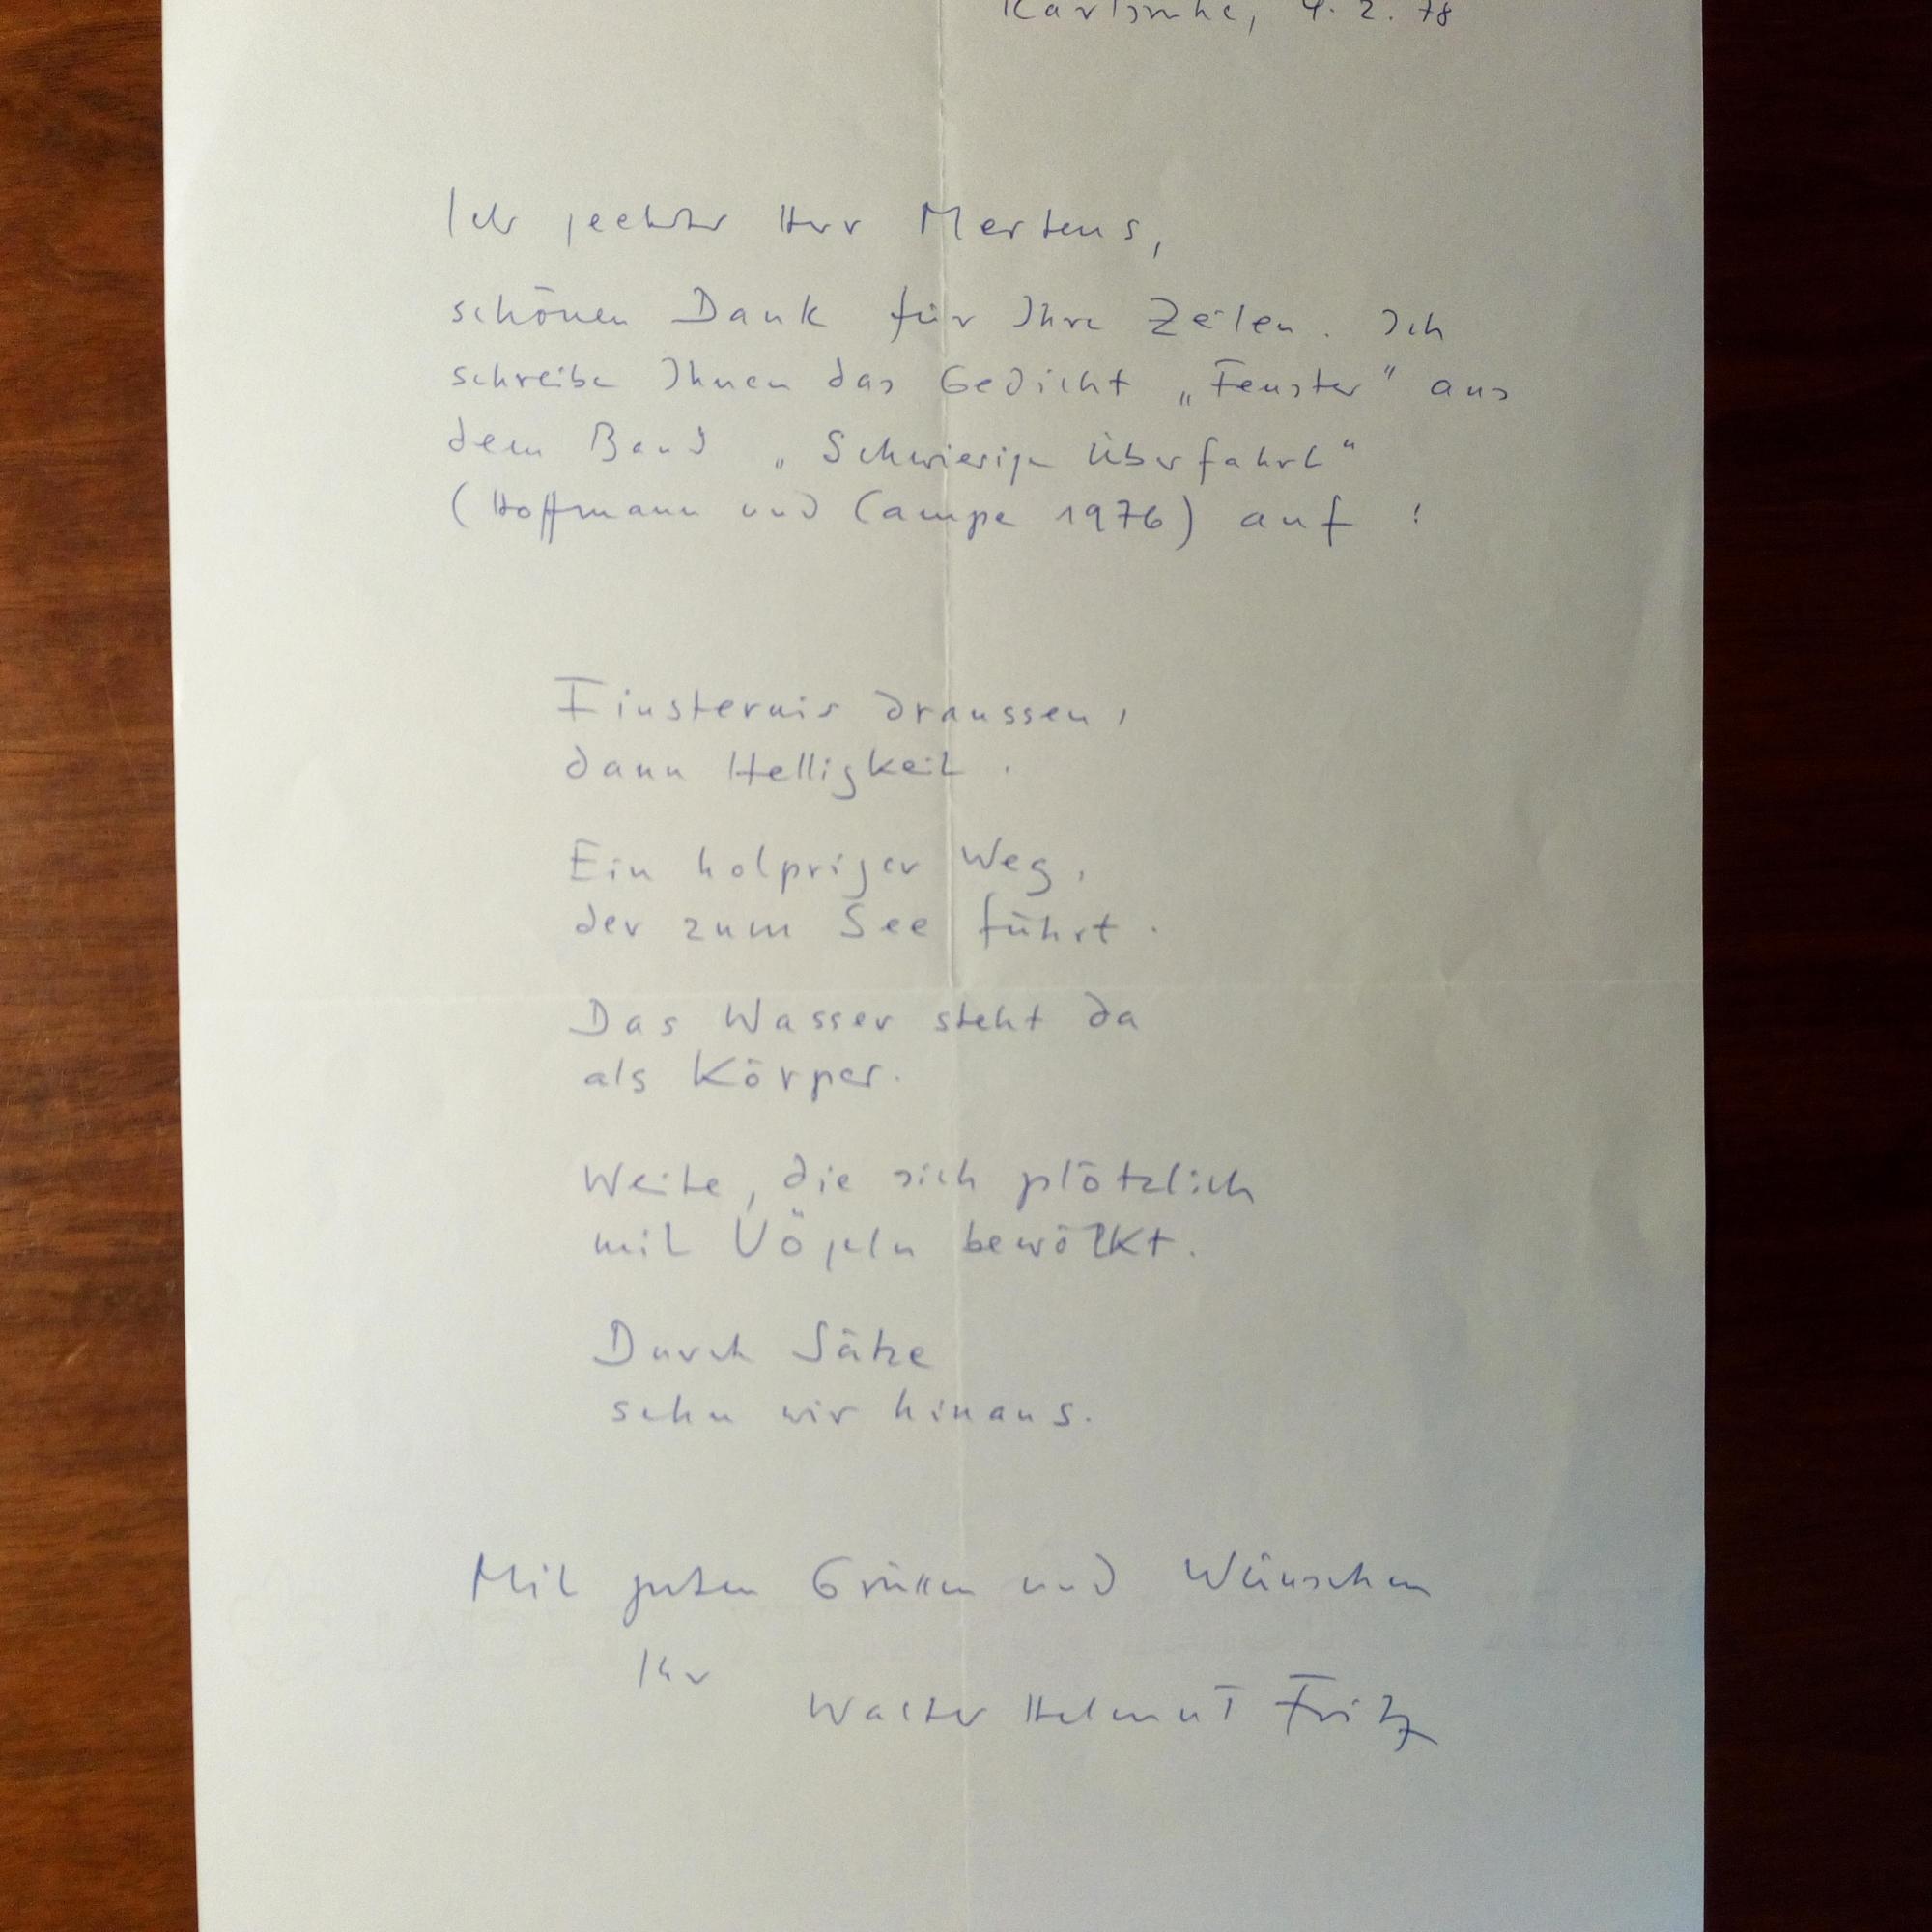 Karlsruhe, 4. 2. 78
geehrter Herr Mertens,
schönen Dank für Ihre Zeilen. Ich
schreibe Ihnen das Gedicht „Fenster“ aus
dem Band „Schwierige Überfahrt“
(Hoffmann und Campe 1976) auf:
Finsternis draussen,
dann Helligkeit.
Ein holpriger Weg,
der zum See führt.
Das Wasser steht da
als Körper.
Weite, die sich plötzlich
mit Vögeln bewölkt.
Durch Sätze
sehn wir hinaus.
Mit guten Grüssen und Wünschen
Ihr
Walter Helmut Fritz